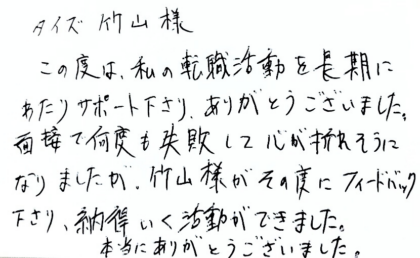 タイズ 竹山様
この度は、私の転職活動を長期に
わたりサポート下さり、ありがとうございました。
面接で何度も失敗して心が折れそうに
なりましたが、竹山様がその度にフィードバック
下さり、納得いく活動ができました。
本当にありがとうございました。